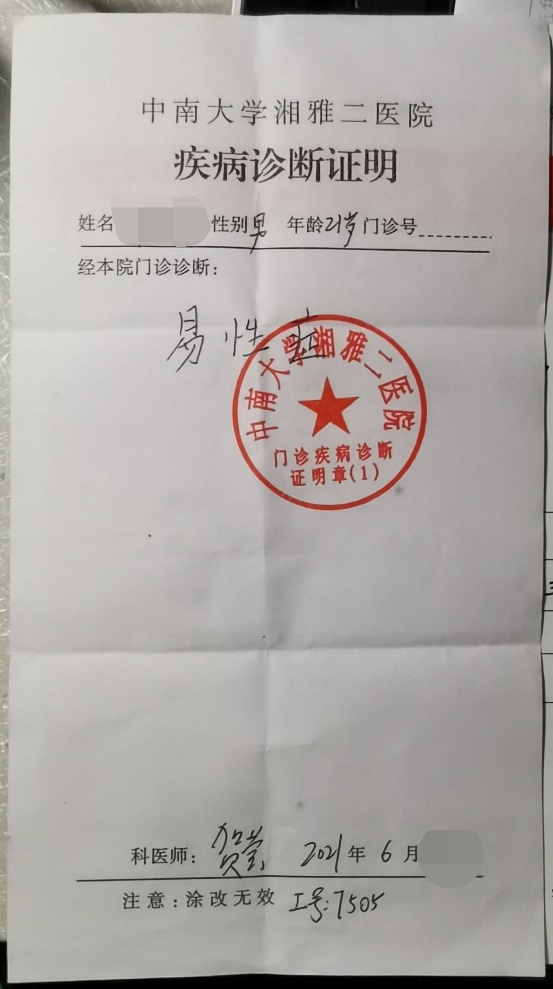 中南大学湘雅二医院
疾病诊断证明
姓名 性别男 年龄21岁 门诊号
经本院门诊诊断：
易性症
中南大学湘雅二医院
门诊疾病诊断
证明章(1)
科医师：贺莹 2021年6月
注意：涂改无效 工号:7505